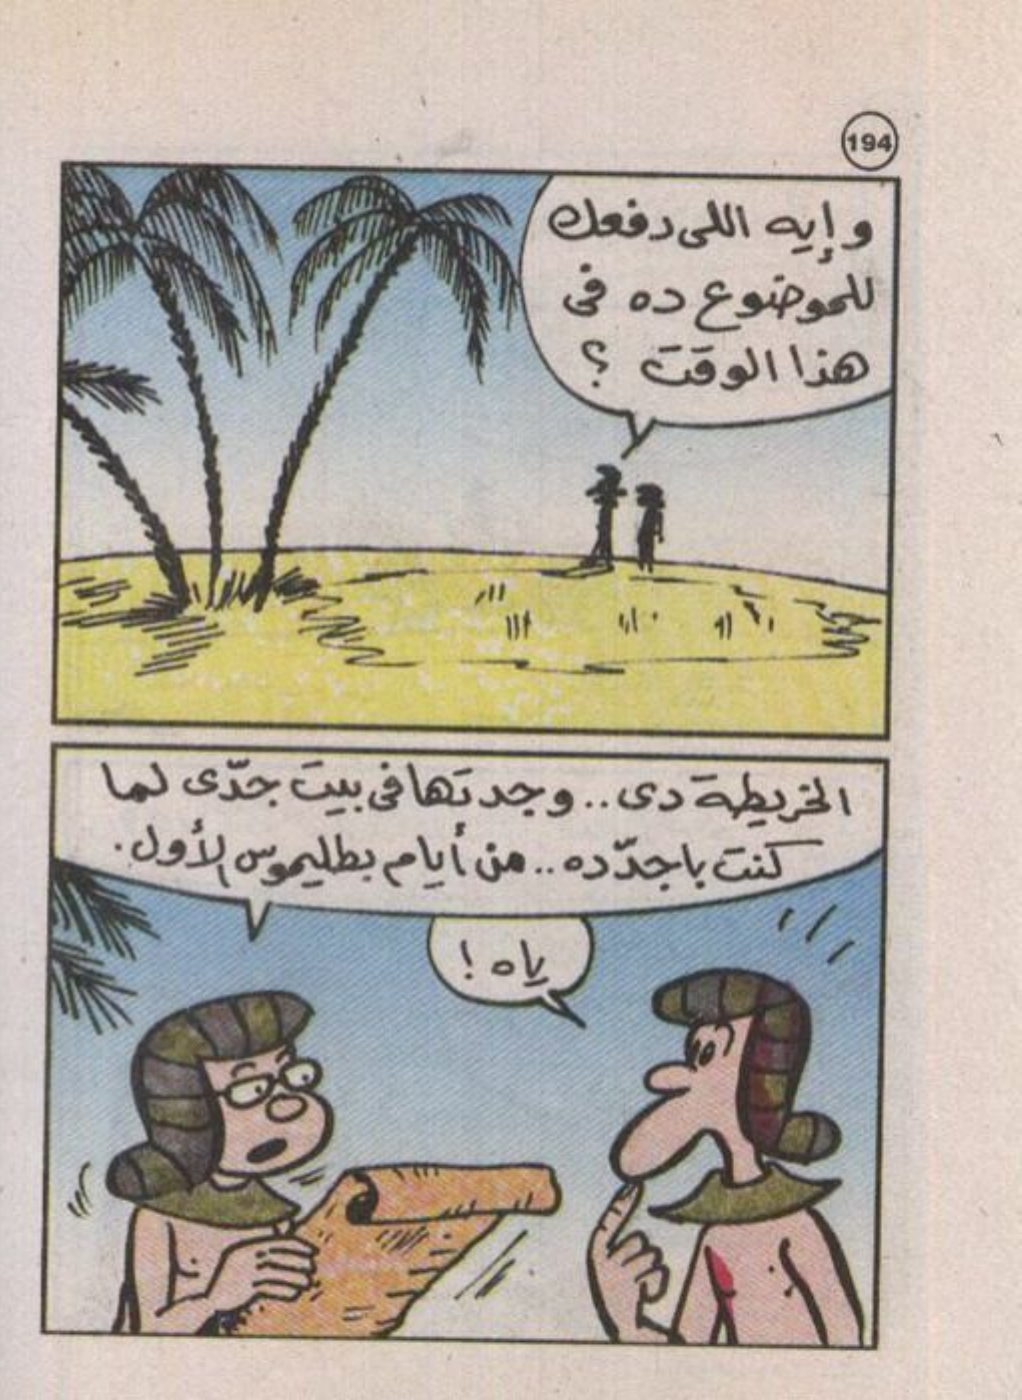 194
وإيه اللى دفعك
للموضوع ده فى
هذا الوقت ؟
الخريطة دى.. وجدتها فى بيت جدّى لما
كنت باجدّده.. من أيام بطليموس الأول.
ياه !